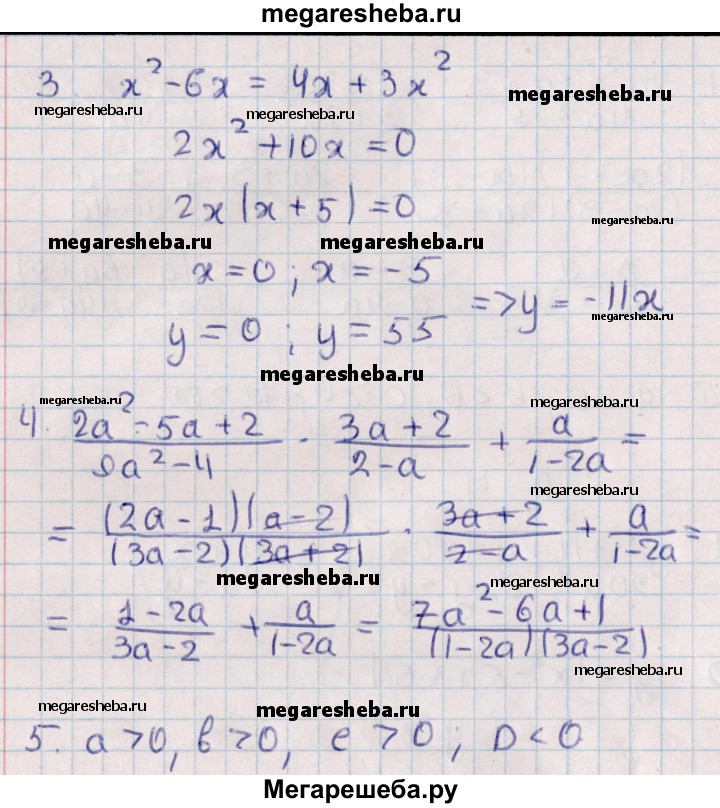 megaresheba.ru
3 x²-6x = 4x+3x²
megaresheba.ru megaresheba.ru megaresheba.ru
2x²+10x=0
2x(x+5)=0
megaresheba.ru
megaresheba.ru megaresheba.ru
x=0; x=-5
=> y=-11x
megaresheba.ru
y=0; y=55
megaresheba.ru
megaresheba.ru megaresheba.ru
4. (2a²-5a+2)/(9a²-4) · (3a+2)/(2-a) + a/(1-2a) =
megaresheba.ru
= (2a-1)(a-2)/(3a-2)(3a+2) · (3a+2)/(2-a) + a/(1-2a) =
megaresheba.ru megaresheba.ru
= (1-2a)/(3a-2) + a/(1-2a) = (7a²-6a+1)/(1-2a)(3a-2)
megaresheba.ru
megaresheba.ru megaresheba.ru
5. a>0, b>0, c>0; D<0
Мегарешеба.ру